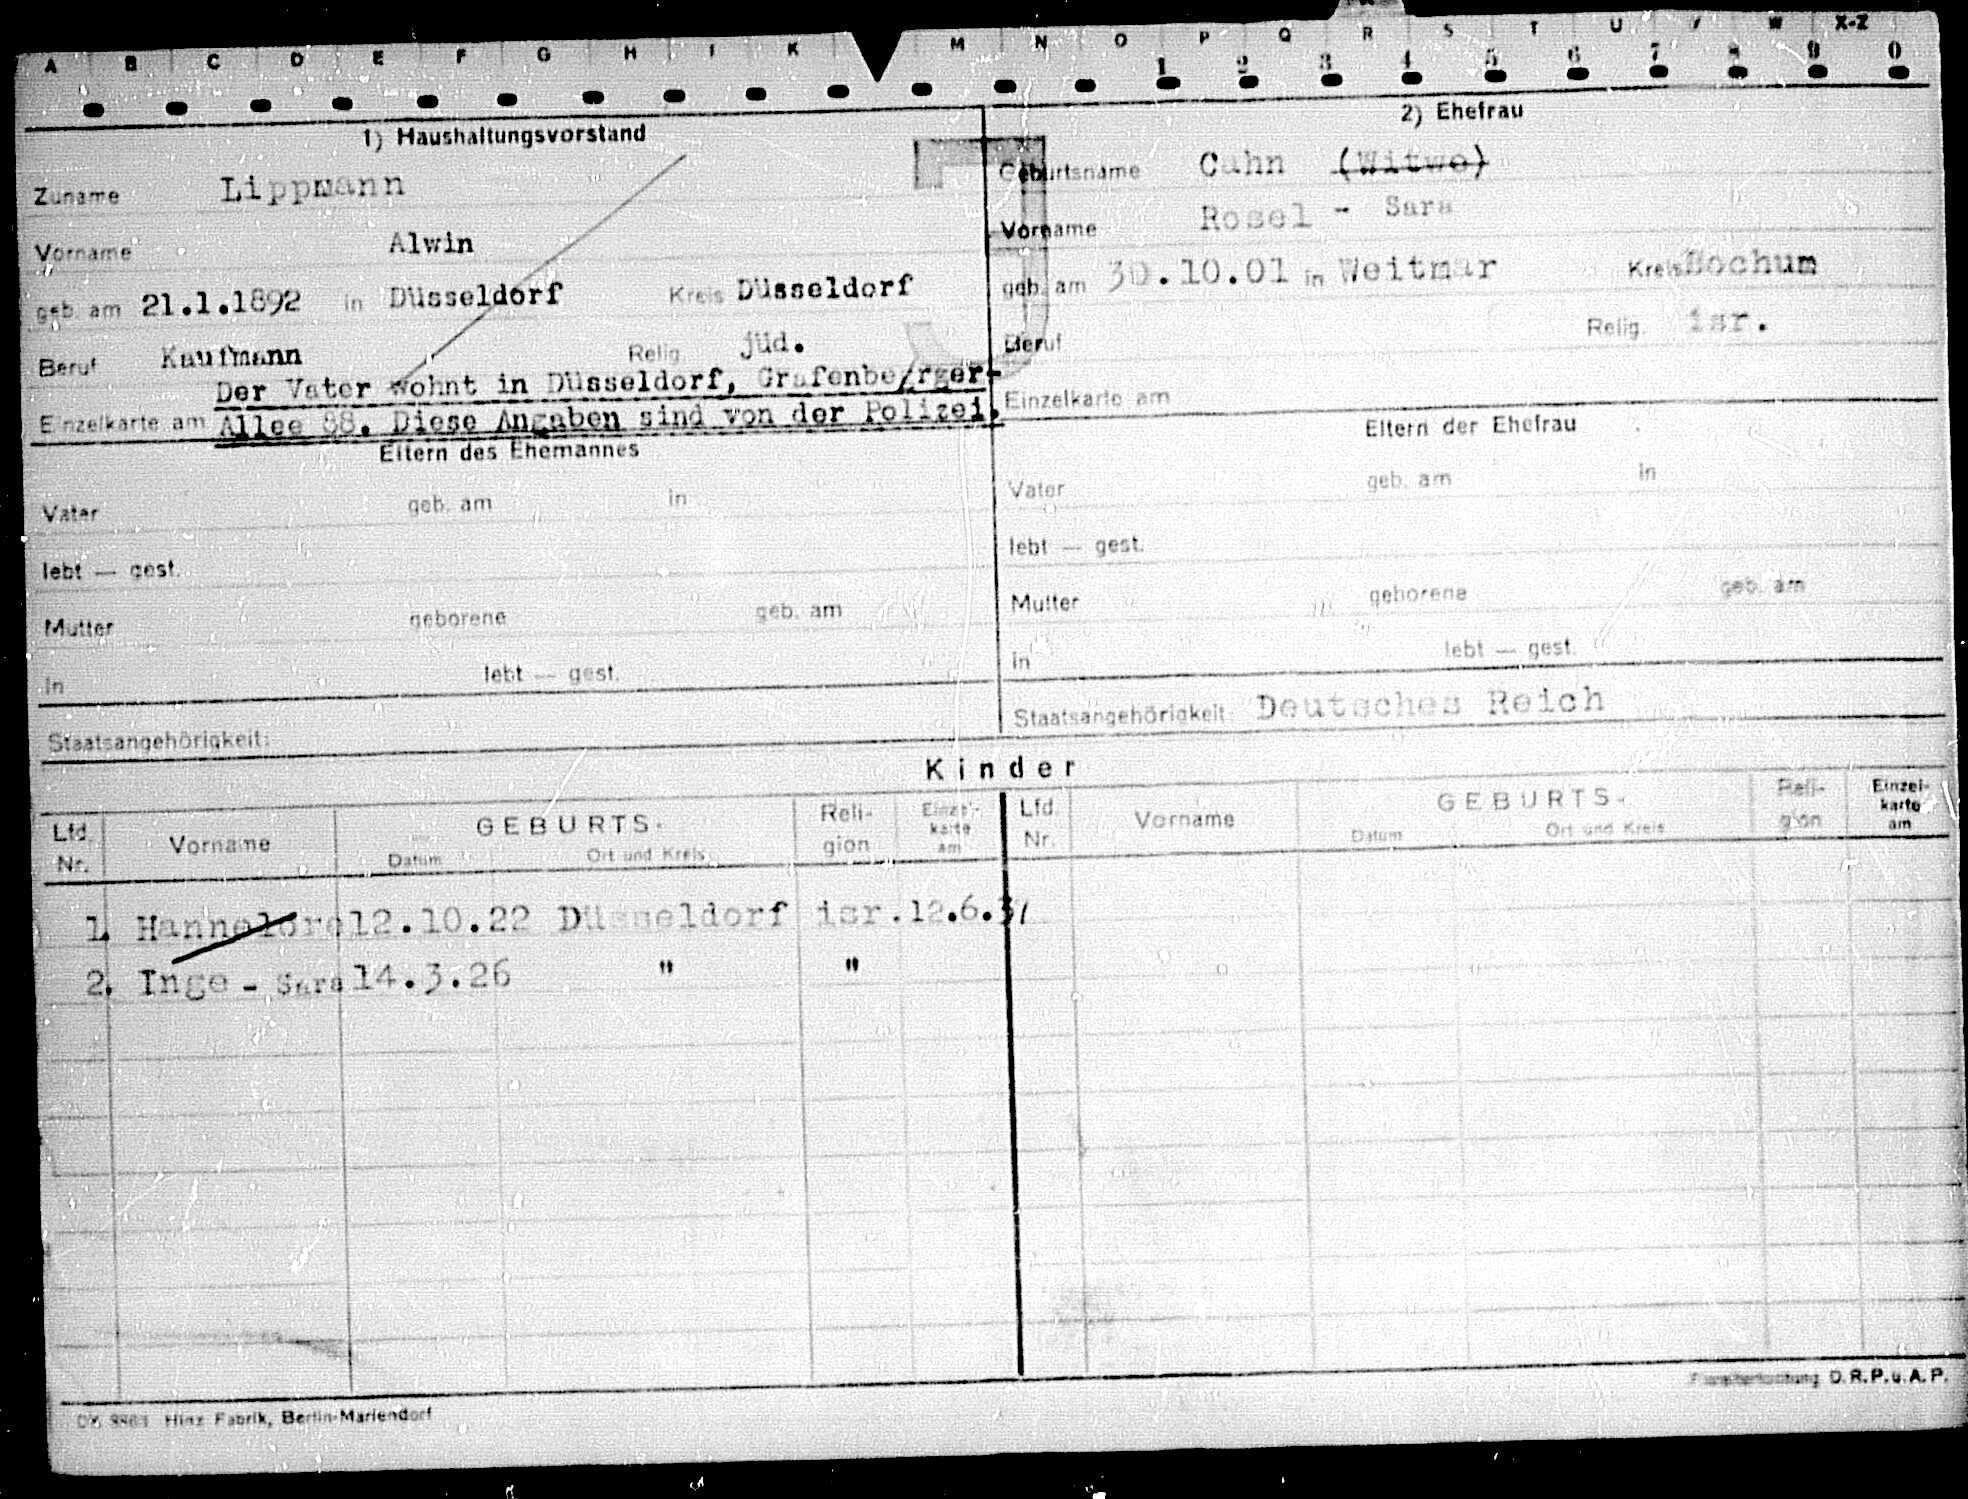 A B C D E F G H I K M N O P Q R S T U V W X-Z
1 2 3 4 5 6 7 8 9 0
1) Haushaltungsvorstand
Zuname Lippmann
Vorname Alwin
geb. am 21.1.1892 in Düsseldorf Kreis Düsseldorf
Beruf Kaufmann Relig. jüd.
Der Vater wohnt in Düsseldorf, Grafenberger-
Einzelkarte am Allee 88. Diese Angaben sind von der Polizei.
Eltern des Ehemannes
Vater geb. am in
lebt — gest.
Mutter geborene geb. am
in lebt — gest.
Staatsangehörigkeit:
2) Ehefrau
Geburtsname Cahn (Witwe)
Vorname Rosel - Sara
geb. am 30.10.01 in Weitmar Kreis Bochum
Beruf Relig. isr.
Einzelkarte am
Eltern der Ehefrau
Vater geb. am in
lebt — gest.
Mutter geborene geb. am
in lebt — gest.
Staatsangehörigkeit: Deutsches Reich
Kinder
Lfd. Nr. Vorname GEBURTS- Datum Ort und Kreis Reli-gion Einzel-karte am Lfd. Nr. Vorname GEBURTS- Datum Ort und Kreis Reli-gion Einzel-karte am
1. Hannelore 12.10.22 Düsseldorf isr. 12.6.37
2. Inge - Sara 14.3.26 " "
Hinz Fabrik, Berlin-Mariendorf
D.R.P.u.A.P.